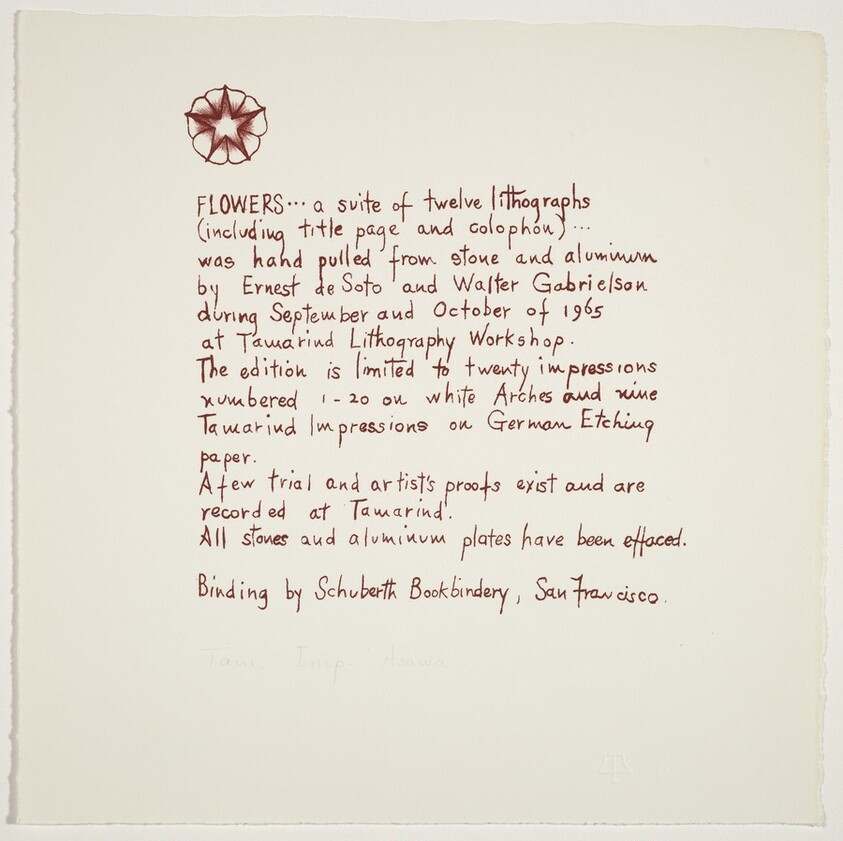 FLOWERS... a suite of twelve lithographs
(including title page and colophon)...
was hand pulled from stone and aluminum
by Ernest de Soto and Walter Gabrielson
during September and October of 1965
at Tamarind Lithography Workshop.
The edition is limited to twenty impressions
numbered 1-20 on white Arches and nine
Tamarind Impressions on German Etching
paper.
A few trial and artist's proofs exist and are
recorded at Tamarind.
All stones and aluminum plates have been effaced.
Binding by Schuberth Bookbindery, San Francisco.
Tam. Imp. Asawa